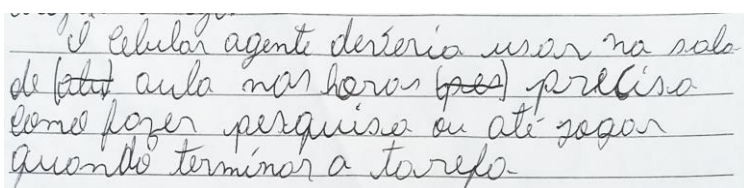 O celular agente deveria usar na sala
de (atu) aula nas horas (pres) precisa
como fazer pesquisa ou até jogar
quando terminar a tarefa.